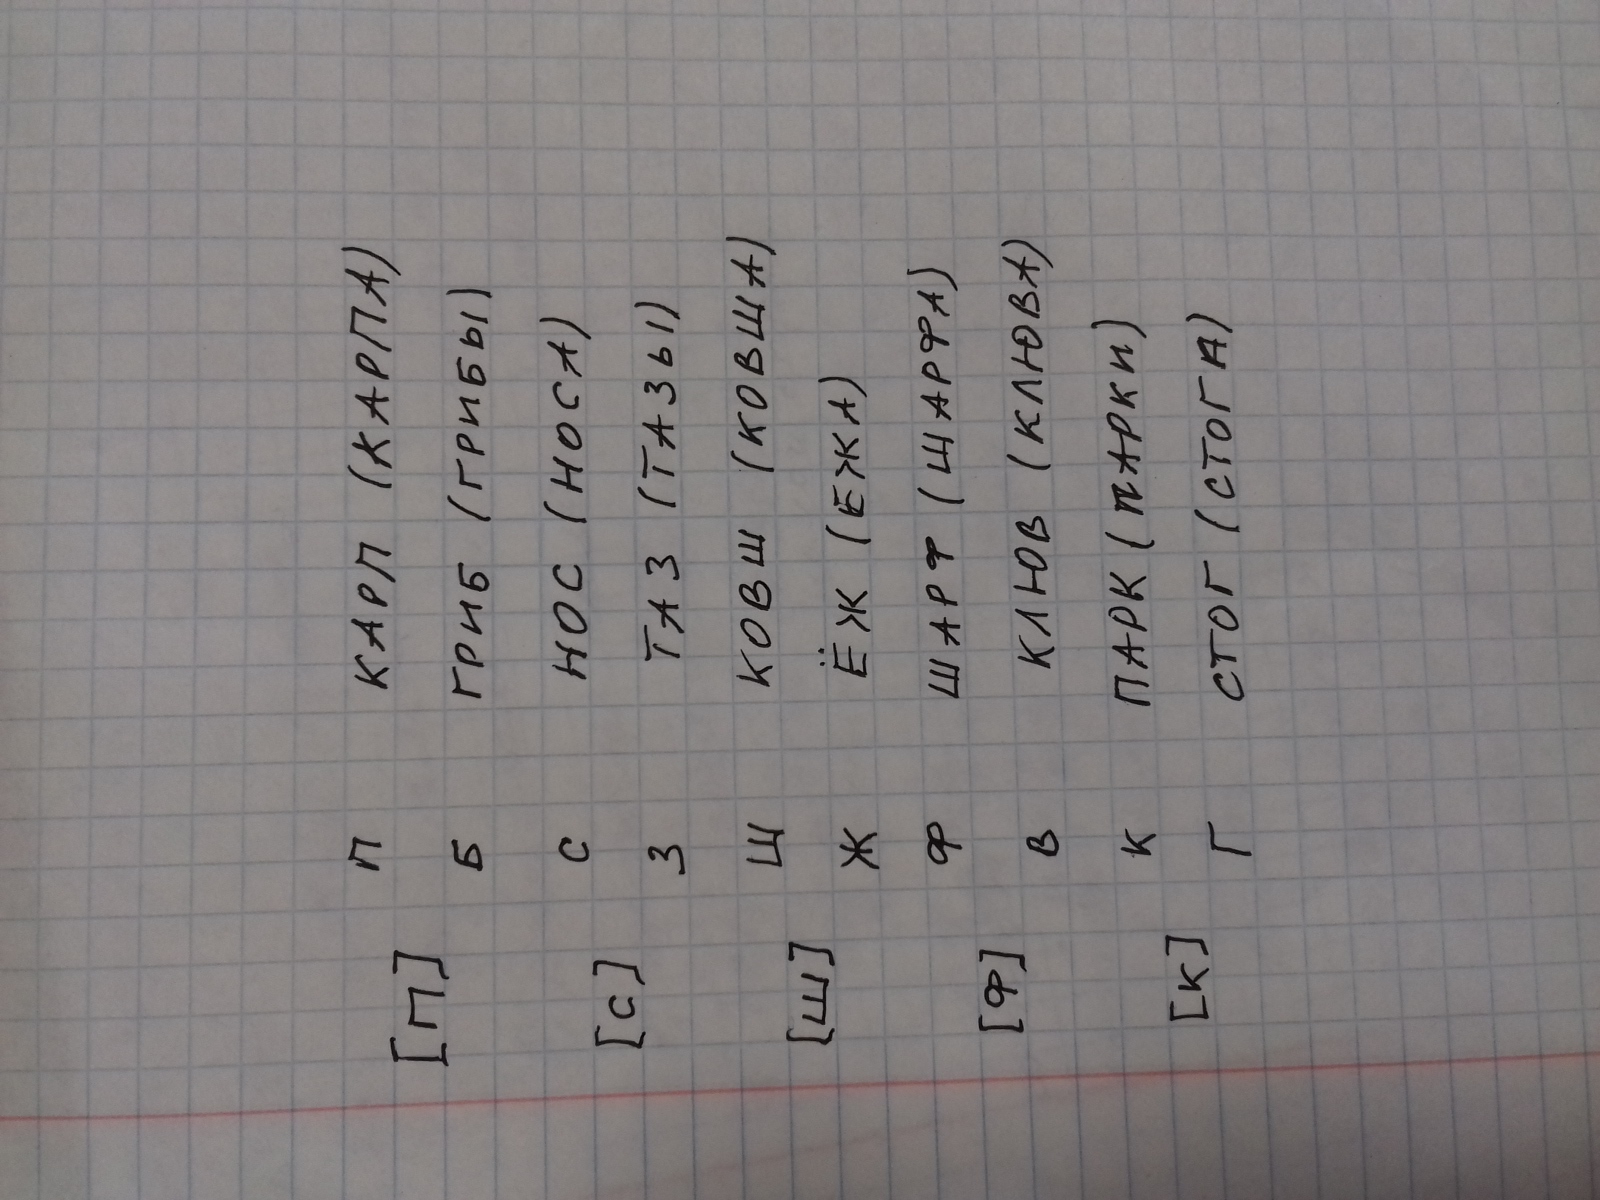 [П] П КАРП (КАРПА)
Б ГРИБ (ГРИБЫ)
[С] С НОС (НОСА)
З ТАЗ (ТАЗЫ)
[Ш] Ш КОВШ (КОВША)
Ж ЁЖ (ЕЖА)
[Ф] Ф ШАРФ (ШАРФА)
В КЛЮВ (КЛЮВА)
[К] К ПАРК (ПАРКИ)
Г СТОГ (СТОГА)